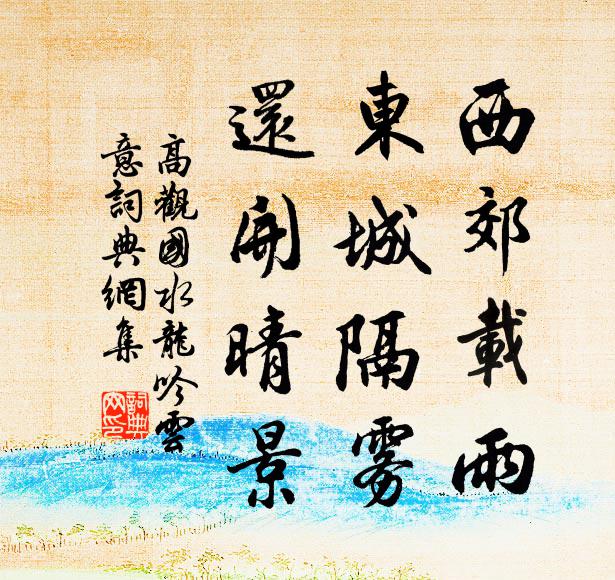 西郊載雨
東城隔霧
還開晴景
高觀國水龍吟雲
意詞典網集
詞典網印